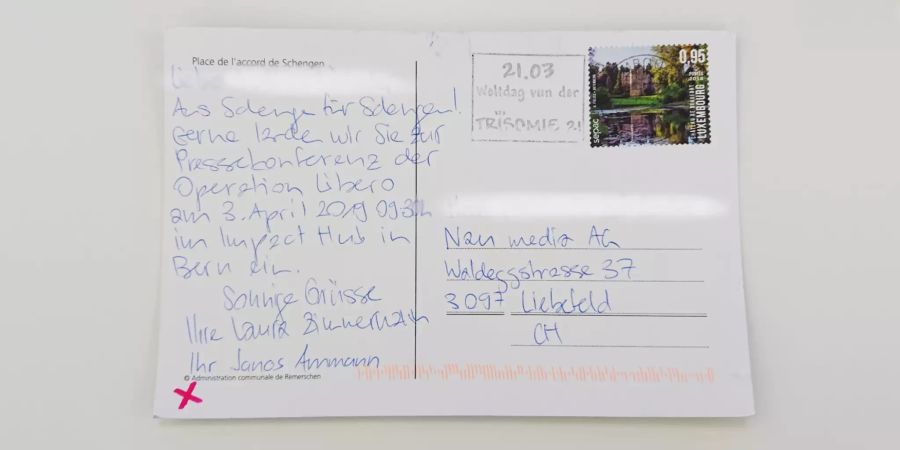 Place de l'accord de Schengen
Liebe
Aus Schengen für Schengen!
Gerne laden wir Sie zur
Pressekonferenz der
Operation Libero
am 3. April 2019 09:30h
im Impact Hub in
Bern ein.
Sonnige Grüsse
Ihre Laura Zimmermann
Ihr Janos Ammann
© Administration communale de Remerschen
21.03
Weltdag vun der
TRISOMIE 21
0,95
LUXEMBOURG
sepac
Nau media AG
Waldeggstrasse 37
3097 Liebefeld
CH